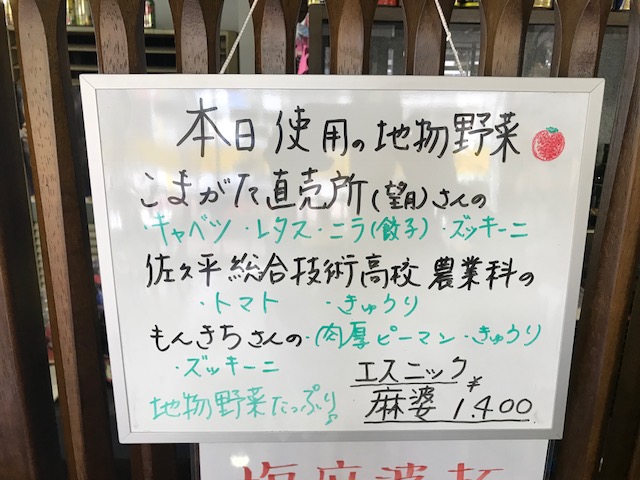 本日使用の地物野菜
こまがた直売所(望月)さんの
・キャベツ・レタス・ニラ(餃子)・ズッキーニ
佐久平総合技術高校農業科の
・トマト ・きゅうり
もんきちさんの・肉厚ピーマン・きゅうり
・ズッキーニ
エスニック
地物野菜たっぷり♪
麻婆 ¥1.400
麻婆